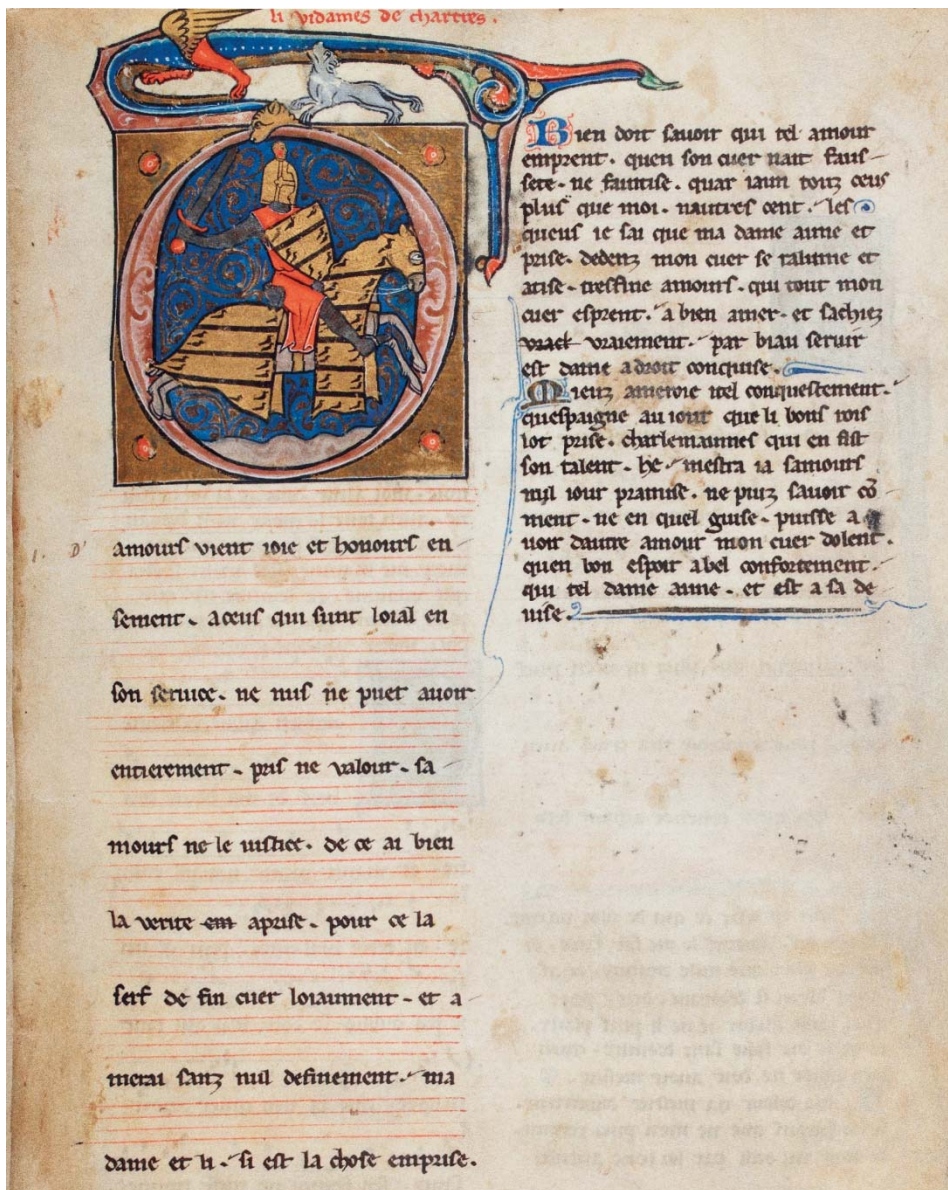 li vidames de chartres.
amours vient ioie et honours en-
sement. aceus qui sunt loial en
son seruice. ne nus ne puet auoir
entierement. pris ne valour. sa-
mours ne le iustice. de ce ai bien
la verite em aprise. pour ce la
serf de fin cuer loiaument. et a-
merai sanz nul definement. ma
dame et li. si est la chose emprise.
Bien doit sauoir qui tel amour
emprent. quen son cuer nait faus-
sete. ne faintise. quar iaim touz ceus
plus que moi. nautres cent. les
queus ie sai que ma dame aime et
prise. dedenz mon cuer se ralume et
atise. tresfine amours. qui tout mon
cuer esprent. a bien amer. et sachiez
vraei vraiement. par biau seruir
est dame adroit conquise.
Mieuz ameroie itel conquestement.
quespaigne au iour que li bons rois
lot prise. charlemainnes qui en fist
son talent. he. mestra ia samours
nul iour pramise. ne puiz sauoir cō
ment. ne en quel guise. puisse a
uoir dautre amour mon cuer dolent.
quen bon espoir abel confortement.
qui tel dame aime. et est a sa de
uise.